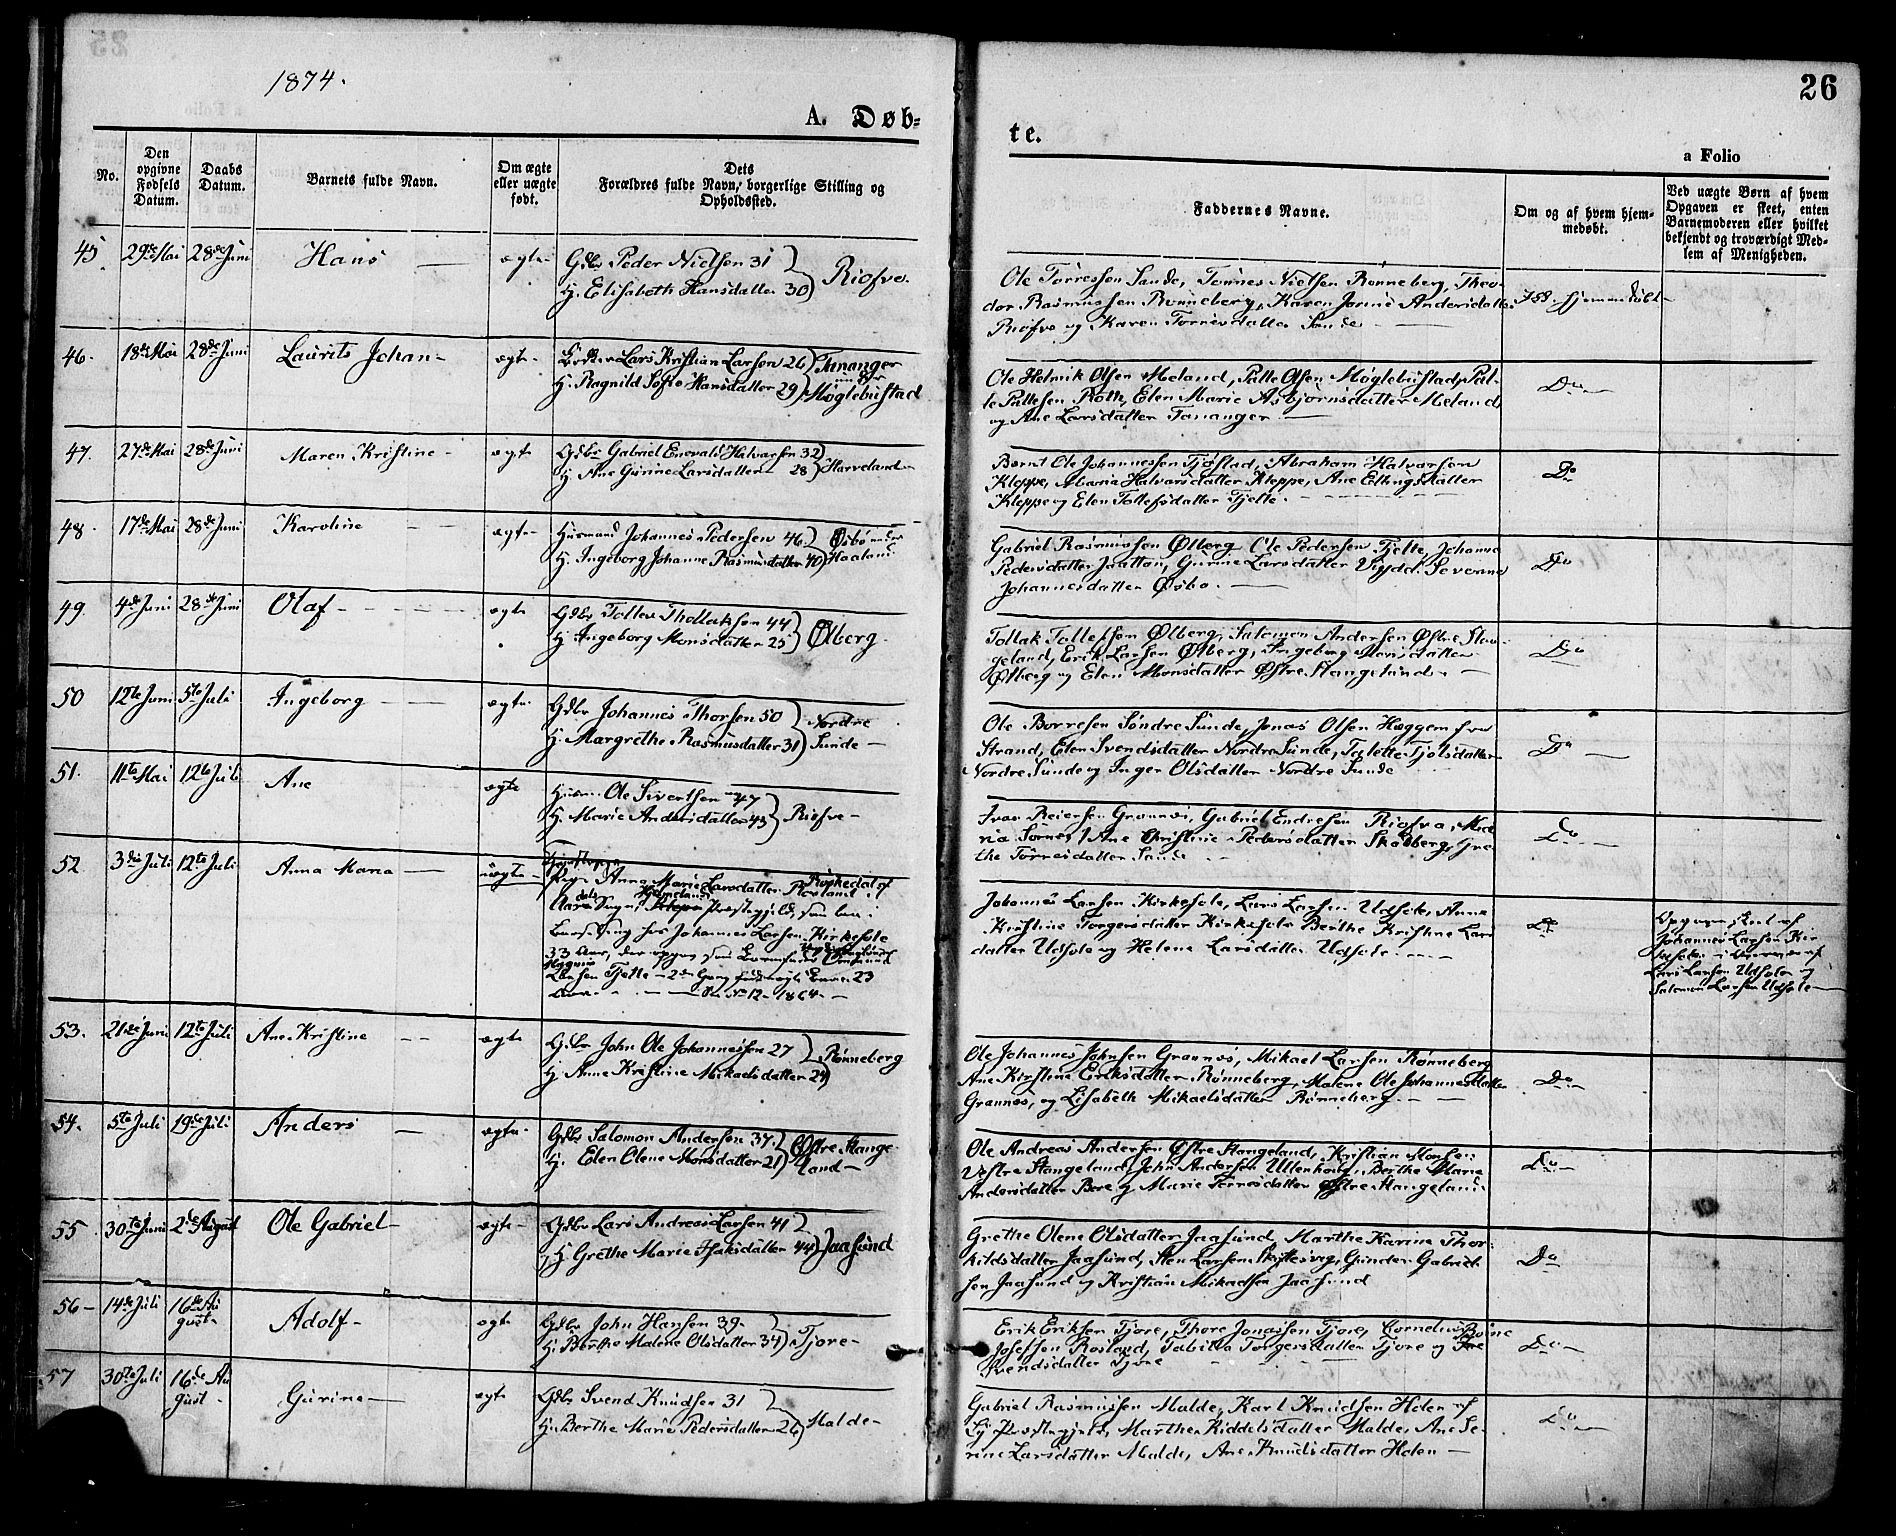 26
1874.
A. Døb-
te.
a Folio
No.
Den opgivne Fødsels Datum.
Daabs Datum.
Barnets fulde Navn.
Om ægte eller uægte født.
Dets Forældres fulde Navn, borgerlige Stilling og Opholdssted.
Faddernes Navne.
Om og af hvem hjem-
medøbt.
Ved uægte Børn af hvem
Opgaven er skeet, enten
Barnemoderen eller hvilket
bekjendt og troværdigt Med-
lem af Menigheden.
45. 29de Mai 28de Juni Hans ægte
Gdbr Peder Nielsen 31
H. Elisabeth Hansdatter 30 Riofve.
Ole Tørressen Sunde, Tønnes Nielsen Rønneberg, Theo-
dor Rasmussen Rønneberg, Karen Jorine Andersdatter
Riofve og Karen Tørresdatter Sunde
hjemmedøbt
46. 18de Mai 28de Juni Laurits Johan ægte
Lars Kristian Larsen 26 Tananger
H. Ragnild Sofie Hansdatter 29 Møglebustad
Ole Helmik Olsen Meland, Palle Olsen Møglebustad, Pal-
le Pallesen Roth, Elen Marie Asbjørnsdatter Meland
og Ane Larsdatter Tananger
Do
47. 27de Mai 28de Juni Maren Kristine ægte
Gdbr Gabriel Enevald Halvorsen 32
H. Ane Gurine Larsdatter 28 Harveland
Bernt Ole Johannessen Tjøstad, Abraham Halvorsen
Kleppe, Maria Halvorsdatter Kleppe, Ane Ellingsdatter
Kleppe og Elen Tollefsdatter Tjelte.
Do
48. 17de Mai 28de Juni Karoline ægte
Husmand Johannes Pedersen 46 Øsbø under
H. Ingeborg Johanne Rasmusdatter 40 Haaland
Gabriel Rasmussen Ølberg, Ole Pedersen Tjelte, Johanne
Pedersdatter Jaattou, Gurine Larsdatter Severine
Johannesdatter Øsbø.
Do
49 4de Juni 28de Juni Olaf ægte
Gdbr Tollev Thollaksen 44
H. Ingeborg Monsdatter 25 Ølberg
Tollak Tollefsen Ølberg, Salomon Andersen Østre Stan-
geland, Erik Larsen Ølberg, Ingeborg Monsdatter
Ølberg og Elen Monsdatter Østre Stangeland.
Do
50 12te Juni 5te Juli Ingeborg ægte
Gdbr Johannes Thorsen 50 Nordre
H. Margrethe Rasmusdatter 31 Sunde
Ole Børresen Søndre Sunde, Jonas Olsen Hæggem fra
Strand, Elen Svendsdatter Nordre Sunde, Talette Tjølsdatter
Nordre Sunde og Inger Olsdatter Nordre Sunde
Do
51. 11te Mai 12te Juli Ane ægte
Husm. Ole Sivertsen 47
H. Marie Andersdatter 43 Riofve
Ivar Reiersen Grannes, Gabriel Endresen Riofve, Ma-
ria Sømes, Ane Christine Pedersdatter Skadberg, Gre-
the Tørresdatter Sunde
Do
52 3die Juli 12te Juli Anna Maria uægte
Pige Anna Marie Larsdatter
Præstegjeld, som
hos Johannes Larsen Kirkesole
33 Aar, der som Barnefader
Larsen Tjelte 2den Gang
No 12 1864
Johannes Larsen Kirkesole, Lars Larsen Udsole, Anne
Kristine Torgersdatter Kirkesole, Berthe Kristine Lars-
datter Udsole og Helene Larsdatter Udsole
Do
Opgaven skeet af
Johannes Larsen Kir-
kesole i Overvær af
Lars Larsen Udsole og
Salomon Larsen Udsole
53. 21de Juni 12te Juli Ane Kristine ægte
Gdbr John Ole Johannessen 27
H. Anne Kristine Mikaelsdatter 24 Rønneberg
Ole Johannes Johnsen Grannes, Mikael Larsen Rønneberg
Ane Kirstine Eriksdatter Rønneberg, Malene Ole Johannesdatter
Grannes, og Lisabeth Mikaelsdatter Rønneberg
Do
54. 5te Juli 19de Juli Anders ægte
Gdbr Salomon Andersen 37 Østre Stange-
H. Elen Olene Monsdatter 21 land
Ole Andreas Andersen Østre Stangeland, Kristian Monsen
Vestre Stangeland, John Andersen Ullenhoug, Berthe Marie
Andersdatter Bore og Marie Tørresdatter Østre Stangeland
Do
55 30te Juni 2den August Ole Gabriel ægte
Gdbr Lars Andreas Larsen 41
H. Grethe Marie Isaksdatter 44 Jaasund
Grethe Olene Olsdatter Jaasund, Marthe Karine Thor-
kildsdatter Jaasund, Sten Larsen Myklesvig, Gunder Gabriel-
sen Jaasund og Kristian Mikaelsen Jaasund
Do
56 14de Juli 16de Au-
gust Adolf ægte
Gdbr John Hansen 39
H. Berthe Malene Olsdatter 34 Tjore
Erik Eriksen Tjore, Thore Jonassen Tjore, Cornelius
Josefsen Rosland, Tabitha Torgersdatter Tjore og
Svendsdatter Tjore
Do
57 30te Juli 16de Au-
gust Gurine ægte
Gdbr Svend Knudsen 31
H. Berthe Marie Pedersdatter 26 Malde
Gabriel Rasmussen Malde, Karl Knudsen Helen af
Præstegjeld, Marthe Kiddelsdatter Malde, Ane Se-
rine Larsdatter Malde, Ane Knudsdatter Helen
Do